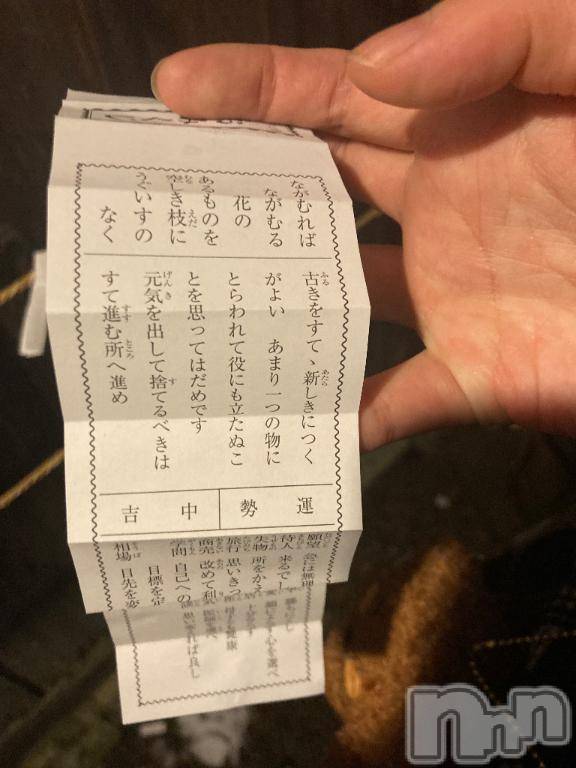 ながむれば
ながむる
花の
あるものを
空しき枝に
うぐいすの
なく
古きをすて、新しきにつく
がよい あまり一つの物に
とらわれて役にも立たぬこ
とを思ってはだめです
元気を出して捨てるべきは
すて進む所へ進め
運勢 中吉
願望 急には無理
待人 来るでし
失物 所をかえ
旅行 思いきっ
商売 改めて利
学問 自己への
相場 目先を変
目標を定
心を選べ
思い
れば良し
nnn